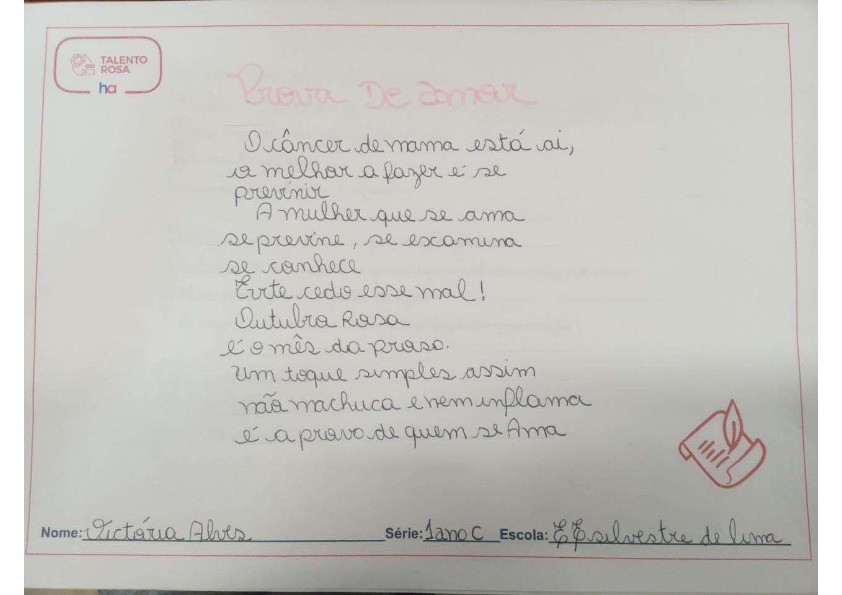 TALENTO
ROSA
ha
Prova De amor
O câncer de mama está ai,
o melhor a fazer é se
previnir
A mulher que se ama
se previne, se examina
se conhece
Evite cedo esse mal!
Outubro Rosa
é o mês da proso.
Um toque simples assim
não machuca e nem inflama
é a provo de quem se Ama
Nome: Victória Alves Série: 1ano C Escola: EE silvestre de lima